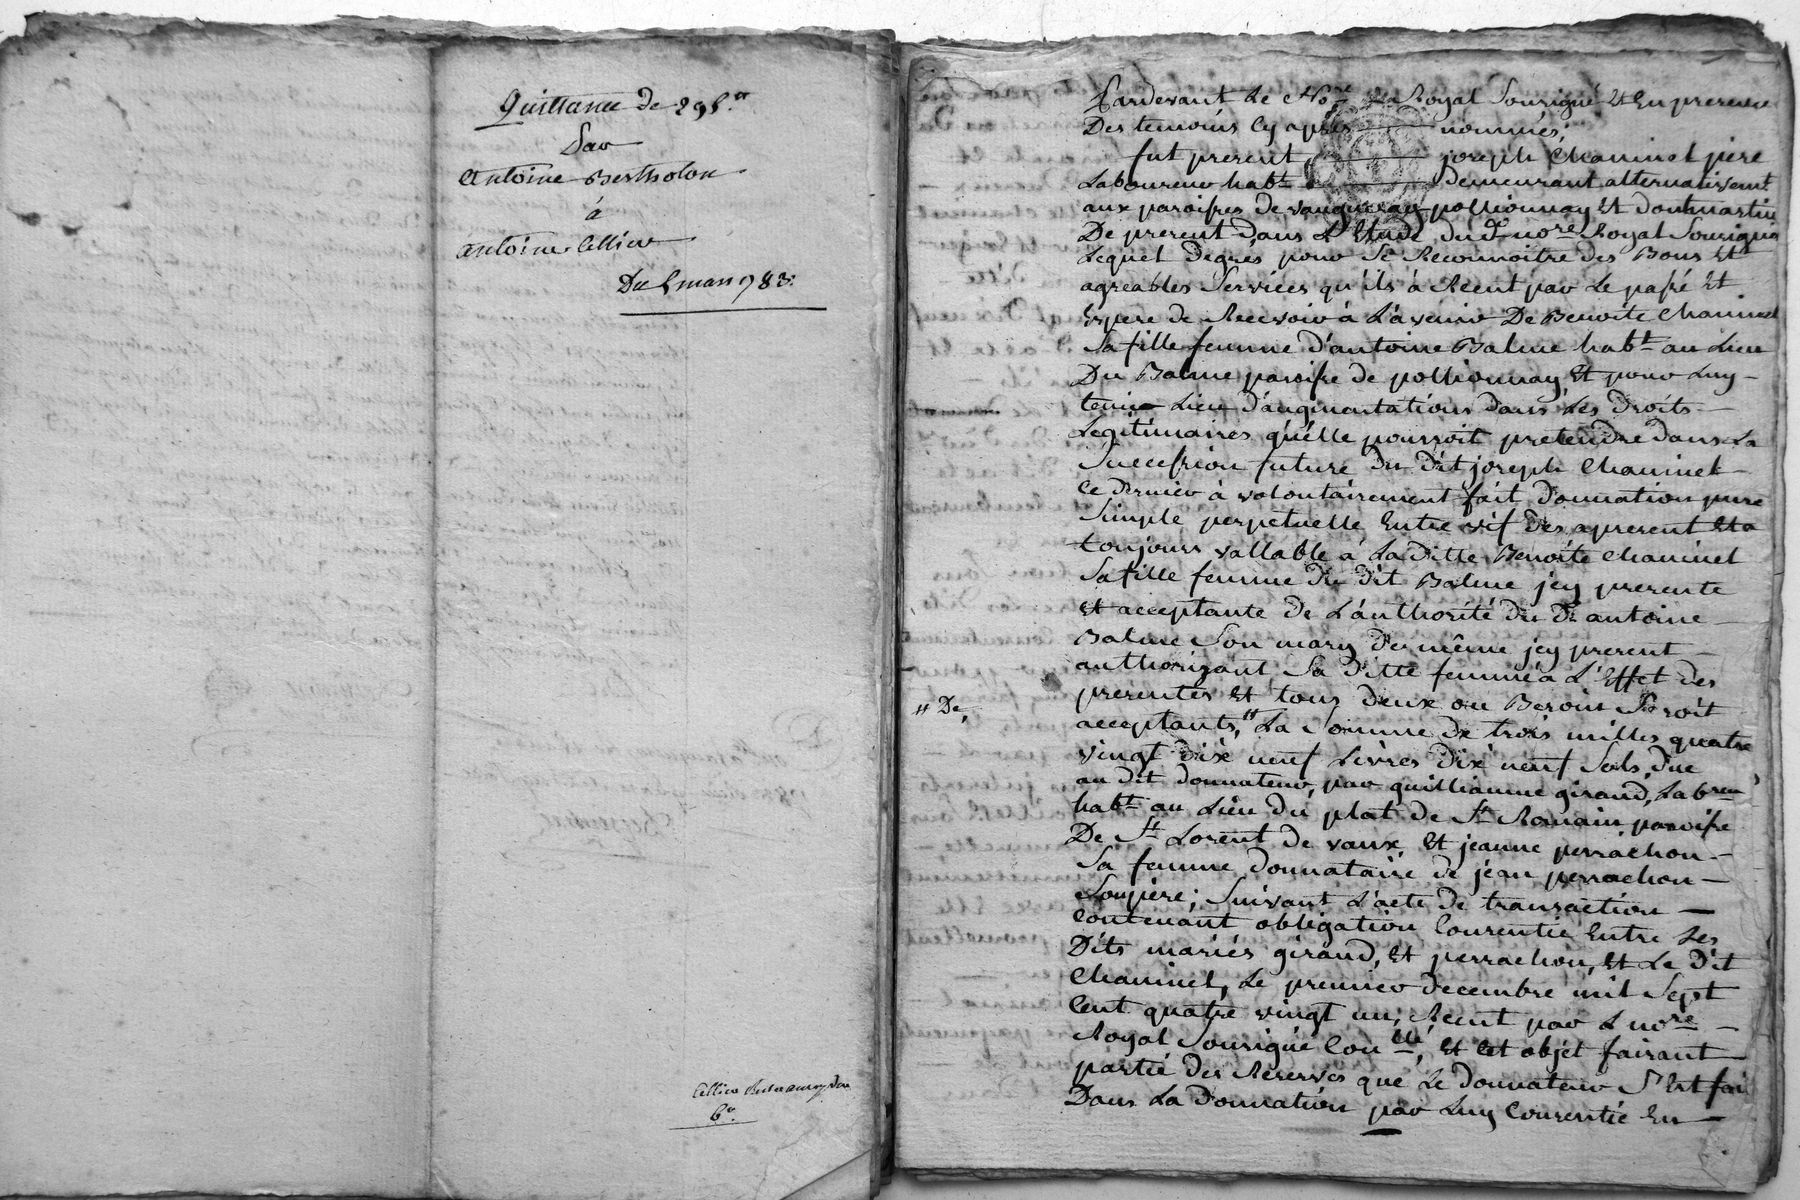 Quittance de 295.tt
Par
Antoine Bertholon
à
antoine Cellier
Du 5 mars 1783.
Cellier
6.
Pardevant Le No.re Royal Sousigné Et En presence
Des temoins Cy après nommés;
fut present, joseph Chaminet père
Laboureur hab.t demeurant alternativem.t
aux paroisses de vaugneray pollionnay Et dommartin
De present dans L'Etude du d.t no.re Royal Sousigné
Lequel degres pour Se Reconnoitre des Bons Et
agreables Services qu'ils à Receut par Le passé Et
Espere de Recevoir à L'avenir De Benoite Chaminet
Sa fille femme d'antoine Balme hab.t au Lieu
Du Balme paroisse de pollionnay, Et pour Luy
tenir Lieu d'augmentations dans Les Droits
Legitimaires qu'elle pourroit pretendre dans La
Succession future du dit joseph Chaminet
Ce dernier à volontairement fait donnation pure
Simple perpetuelle Entre vif des apresent Et a
toujours vallable à Laditte Benoite Chaminet
Sa fille femme du dit Balme jcy presente
Et acceptante de L'authorité du d.t antoine
Balme Son mary de même jcy present
authorizant Sa ditte femme à L'Effet des
presentes Et tous deux ou Besoin Seroit
" De,
acceptants, " La Somme de trois milles quatre
vingt dix neuf Livres dix neuf Sols, due
au dit donnateur, par guilliaume giraud, Lab.reur
hab.t au Lieu du plat de S.t Romain, paroisse
De S.t Lorent de vaux, Et jeanne perrachon
Sa femme donnataire de jean perrachon
Son père; Suivant L'acte de transaction
Contenant obligation Consentie Entre Les
Dits mariés giraud, Et perrachon, Et Le dit
Chaminet, Le premier decembre mil Sept
Cent quatre vingt un, Receut par L no.re
Royal Sousigné Con.llé, Et Cet objet faisant
partie des Reserves que Le donnateur S'Est fai
Dans La donnation par Luy Consentie En